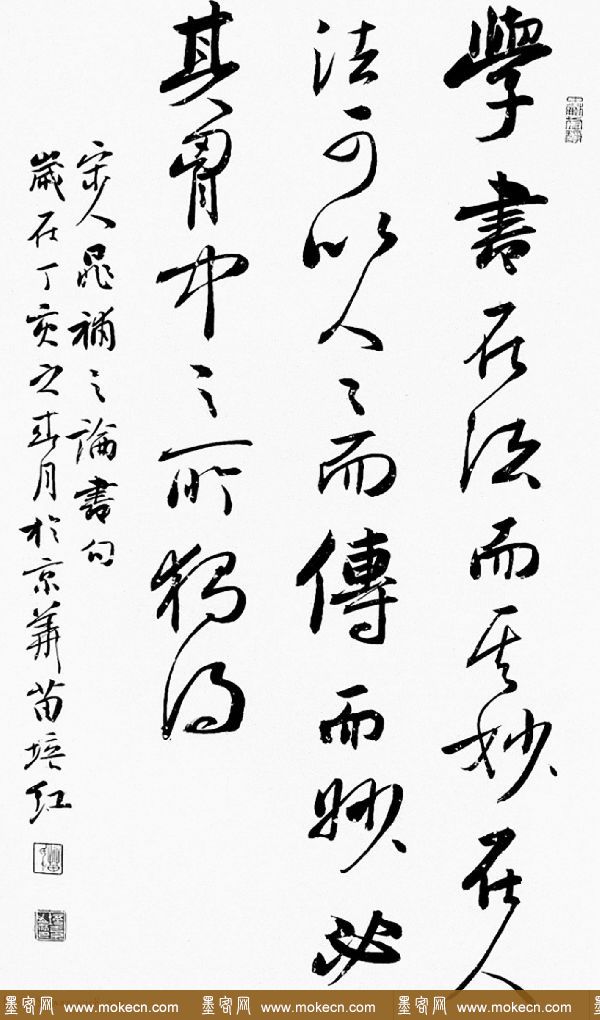 學書在法而其妙在人
法可以人々而傳而妙必
其胷中之所獨得
宋人晁補之論書句
歲在丁亥之春月於京華苗培红
墨客网 www.mokecn.com 墨客网 www.mokecn.com 墨客网 www.mokecn.com